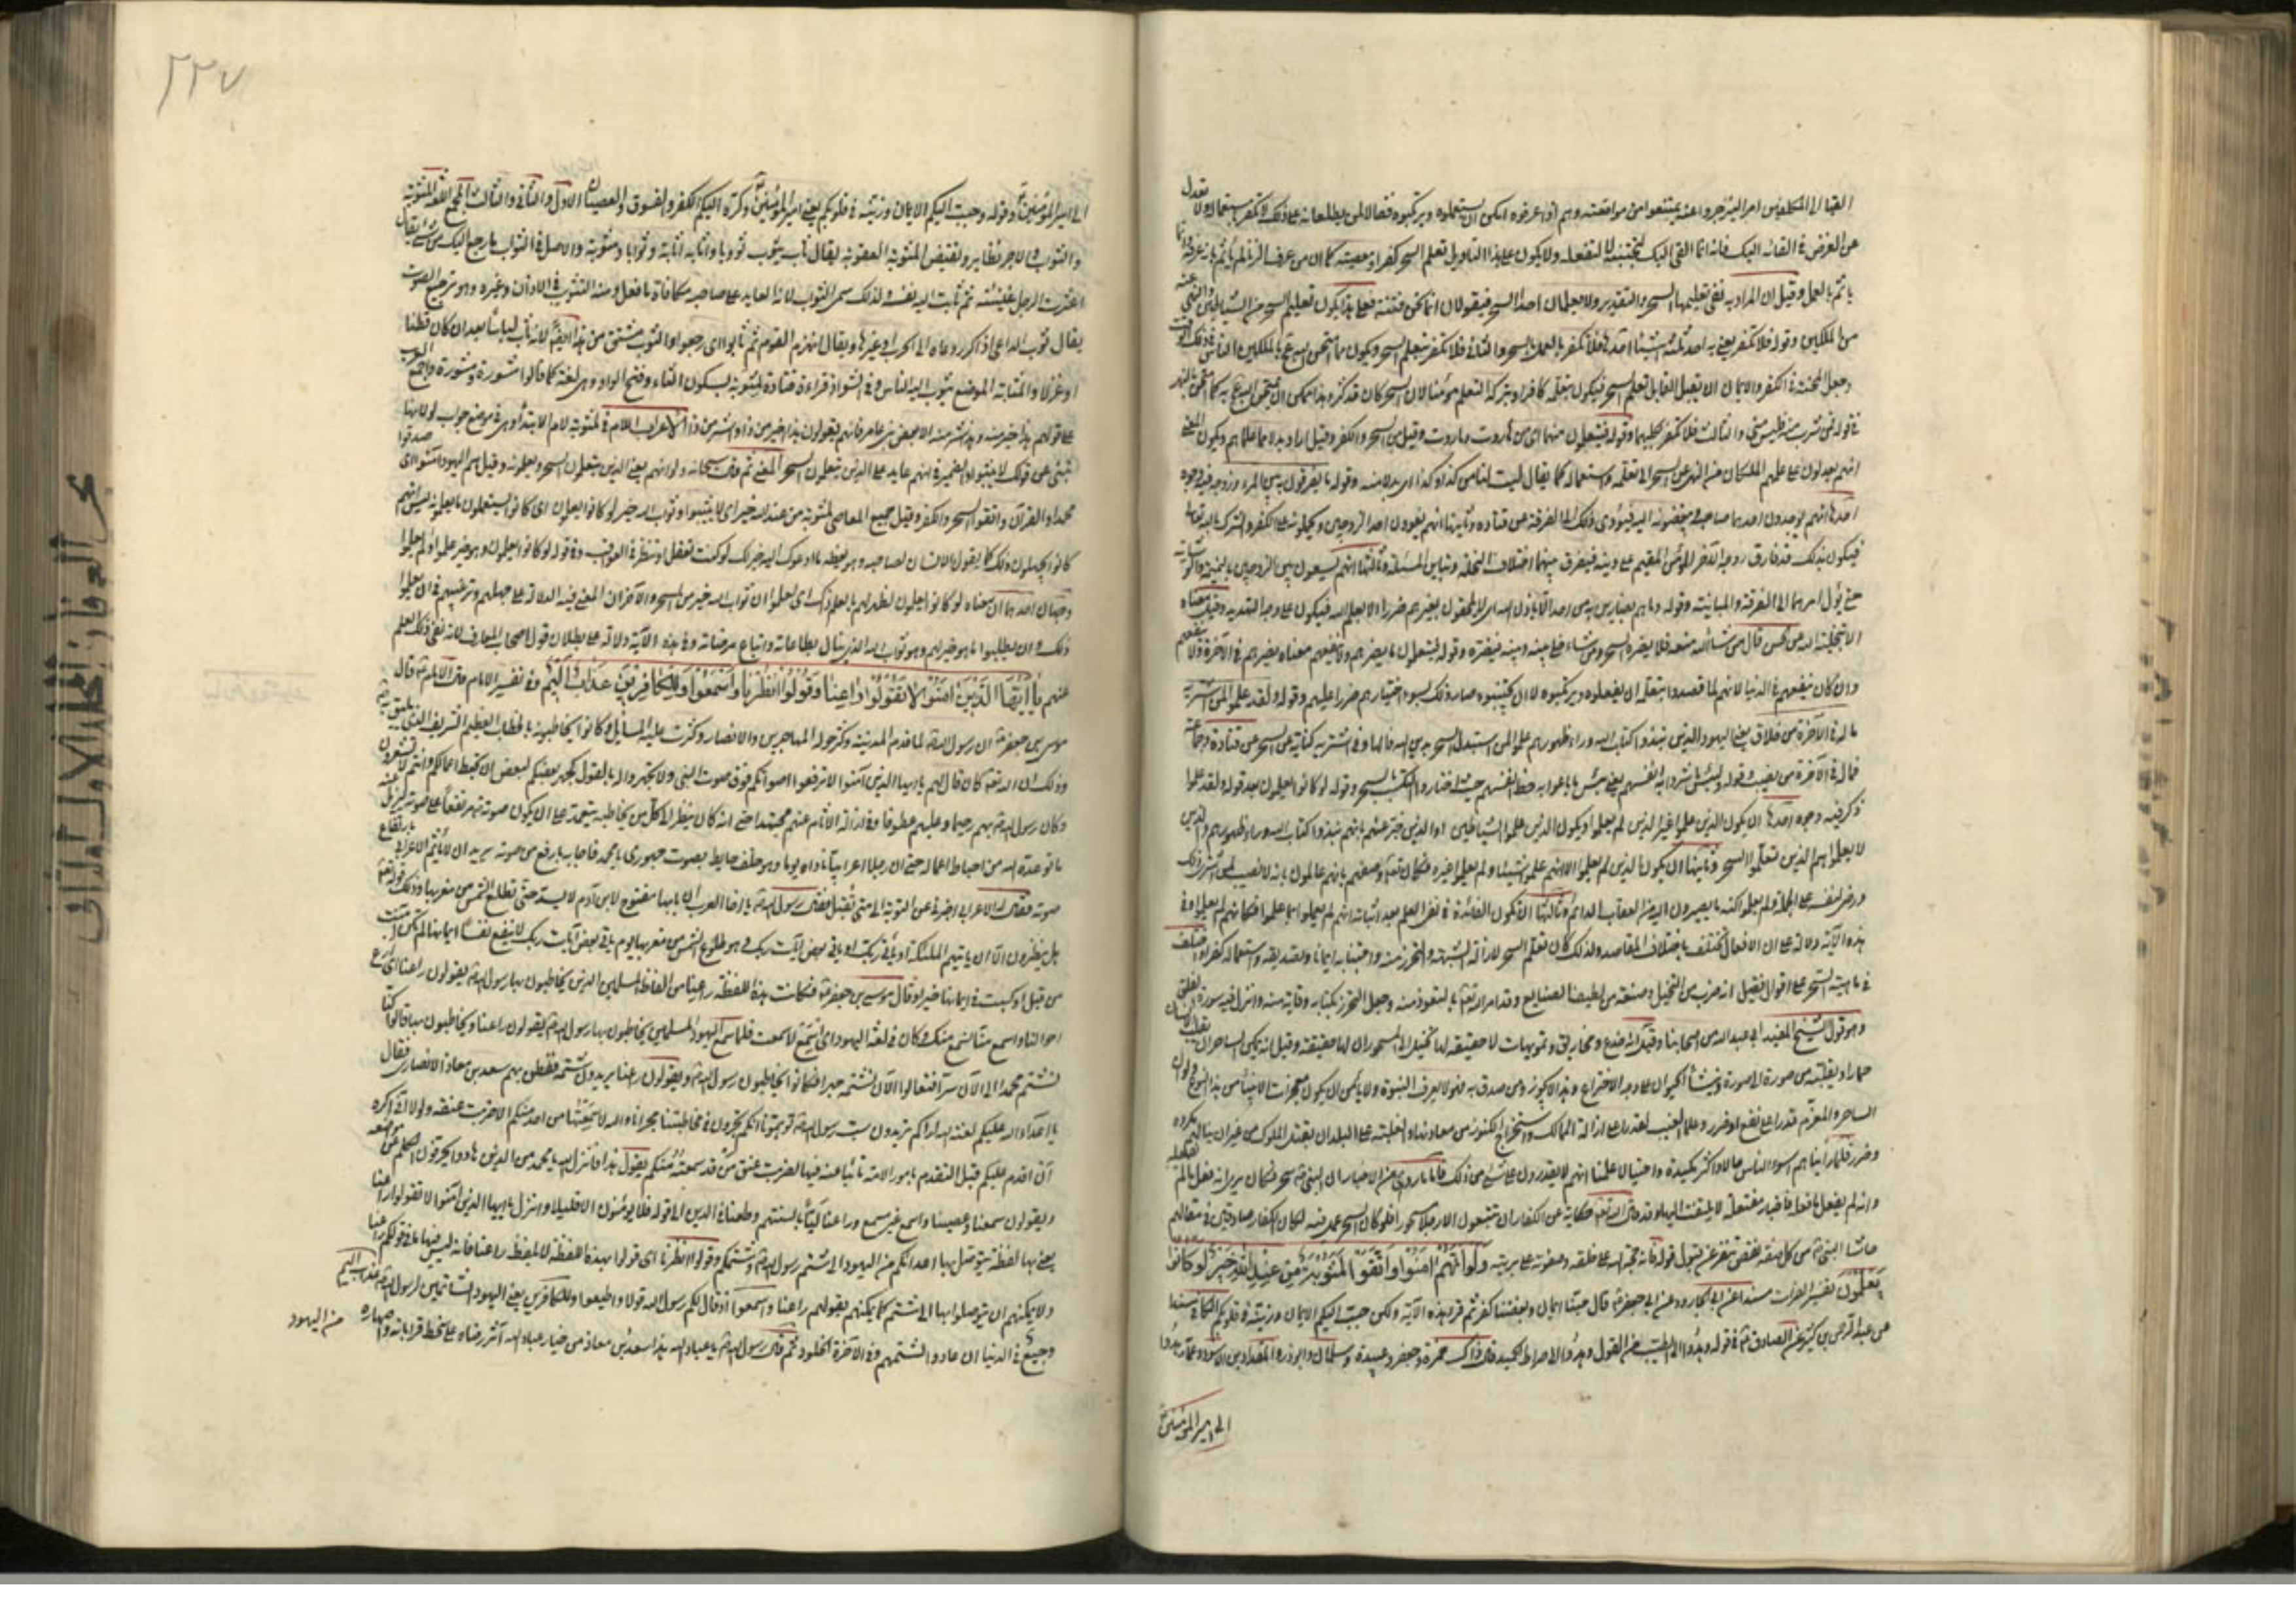 القيا الى المكلفين امر السحر وامتنعوا من مواقعته وهم اذا عرفوه امكن ان يستعملوه ويرتكبوه فقالا لمن يطلعانه على ذلك لا تكفر باستعماله ولا تعدل
عن الغرض في القائه اليك فانه انما القي اليك لتجتنبه لا لتفعله ولا يكون على هذا التاويل تعلم السحر كفرا ومعصية كما ان من عرف الزنا لم ياثم بانه عرفه وانما
ياثم بالعمل وقيل ان المراد به نفي تعليمهما السحر والتقدير ولا يعلمان احدا السحر فيقولان انما نحن فتنة فعلى هذا يكون تعليم السحر من الشياطين والنهي عنه
من الملكين وقوله فلا تكفر يعني به احد ثلثة اشياء احدها فلا تكفر بالعمل بالسحر والثاني فلا تكفر بتعلم السحر ويكون مما امتحن الله عز وجل بالملكين الناس في ذلك الوقت
وجعل المحنة في الكفر والايمان ان يقبل القابل تعلم السحر فيكون بتعلمه كافرا وبترك التعلم مؤمنا لان السحر كان قد كثر وهذا ممكن ان يمتحن الله به كما امتحن بالنهر
في قوله فمن شرب منه فليس مني والثالث فلا تكفر بكليهما وقوله فيتعلمون منهما اي من هاروت وماروت وقيل من السحر والكفر وقيل اراد بدلا مما علماهم ويكون المعنى
انهم يعدلون عما علمهم الملكان من النهي عن السحر الى تعلمه واستعماله كما يقال ليت لنا من كذا وكذا اي بدلا منه وقوله ما يفرقون به بين المرء وزوجه فيه وجوه
احدها انهم يوجدون احدهما على صاحبه ويبغضونه اليه فيؤدي ذلك الى الفرقة عن قتادة وثانيها انهم يغوون احد الزوجين ويحملونه على الكفر والشرك بالله تعالى
فيكون بذلك قد فارق زوجه الآخر المؤمن المقيم على دينه فيفرق بينهما اختلاف النحلة وتباين الملة وثالثها انهم يسعون بين الزوجين بالنميمة والوشاية
حتى يؤل امرهما الى الفرقة والمباينة وقوله وما هم بضارين به من احد الا باذن الله اي لا يلحقون بغيرهم ضررا الا بعلم الله فيكون على وجه التهديد وقيل معناه
الا بتخلية الله عن الحسن قال من شاء الله منعه فلا يضره السحر ومن شاء خلى بينه وبينه فيضره وقوله ويتعلمون ما يضرهم ولا ينفعهم معناه يضرهم في الآخرة ولا ينفعهم
وان كان ينفعهم في الدنيا لانهم لما قصدوا بتعلمه ان يفعلوه ويرتكبوه لا ان يجتنبوه صار ذلك لسوء اختيارهم ضررا عليهم وقوله ولقد علموا لمن اشتريه
ما له في الآخرة من خلاق يعني اليهود الذين نبذوا كتاب الله وراء ظهورهم علموا لمن استبدل السحر بدين الله فالهاء في اشتريه كناية عن السحر عن قتادة وجماعة
فما له في الآخرة من نصيب وقوله ولبئس ما شروا به انفسهم يعني بئس ما باعوا به حظ انفسهم حيث اختاروا التكسب بالسحر وقوله لو كانوا يعلمون بعد قوله ولقد علموا
ذكر فيه وجوه احدها ان يكون الذين علموا غير الذين لم يعلموا ويكون الذين علموا الشياطين او الذين خبر عنهم بانهم نبذوا كتاب الله وراء ظهورهم والذين
لا يعلمون هم الذين تعلموا السحر وثانيها ان يكون الذين لم يعلموا الا انهم علموا شيئا ولم يعلموا غيره فكانه تعالى وصفهم بانهم عالمون بانه لا نصيب لمن اشترى ذلك
ورضي لنفسه على الجملة ولم يعلموا كنه ما يصيرون اليه من العقاب الدائم وثالثها ان تكون الفائدة في نفي العلم بعد اثباته انهم لم يعملوا بما علموا فكانهم لم يعلموا وفي
هذه الآية دلالة على ان الافعال تختلف باختلاف المقاصد ولذلك كان تعلم السحر لازالة الشبهة والتحرز منه واجتنابه ايمانا وتصديقه واستعماله كفرا واختلف
في ماهية السحر على اقوال فقيل انه ضرب من التخييل وصنعة من لطيف الصنايع وقد امر الله تعالى بالتعوذ منه وجعل التحرز بكتابه وقاية منه وانزل فيه سورة الفلق
وهو قول الشيخ المفيد ابي عبد الله من اصحابنا وقيل انه خدع ومخاريق وتمويهات لا حقيقة لها تخيل الى المسحور ان لها حقيقة وقيل انه يمكن الساحر ان يقلب الانسان
حمارا ويقلبه من صورة الى صورة وينشأ الحيوان على وجه الاختراع وهذا لا يجوز ومن صدق به فهو لا يعرف النبوة ولا يأمن ان يكون معجزات الانبياء من هذا النوع ولو ان
الساحر والمعزم قدرا على نفع او ضر وعلما الغيب لقدرا على ازالة الممالك واستخراج الكنوز من معادنها والغلبة على البلدان بقتل الملوك من غير ان ينالهم مكروه
وضرر فلما رايناهم اسوء الناس حالا واكثرهم مكيدة واحتيالا علمنا انهم لا يقدرون على شيء من ذلك فاما ما روي من الاخبار ان النبي سحر فكان يرى انه فعل ما لم يفعله
وانه لم يفعل ما فعله فاخبار مفتعلة لا يلتفت اليها وقد قال الله تعالى حكاية عن الكفار ان تتبعون الا رجلا مسحورا فلو كان السحر عمل فيه لكان الكفار صادقين في مقالهم
حاشا النبي من كل صفة نقص تنفر عن قبول قوله فانه حجة الله على خلقه وصفوته على بريته وَلَوْ أَنَّهُمْ آمَنُوا وَاتَّقَوْا لَمَثُوبَةٌ مِنْ عِنْدِ اللهِ خَيْرٌ لَوْ كَانُوا
يَعْلَمُونَ تفسير الفرات مسندا عن ابي الجارود عن ابي جعفر قال حبنا ايمان وبغضنا كفر ثم قرا هذه الآية ولكن حبب اليكم الايمان وزينه في قلوبكم
عن عبد الرحمن بن كثير عن الصادق في قوله وهدوا الى الطيب من القول وهدوا الى صراط الحميد قال ذاك حمزة وجعفر وعبيدة وسلمان وابو ذر والمقداد بن الاسود وعمار هدوا
الى امير المؤمنين
٢٢٧
الى امير المؤمنين وقوله وحبب اليكم الايمان وزينه في قلوبكم يعني امير المؤمنين وكره اليكم الكفر والفسوق والعصيان الاول والثاني والثالث المجمع اللغة المثوبة
والثواب والاجر نظاير ونقيض المثوبة العقوبة يقال ثاب يثوب ثوبا وثوابا واثابه اثابة وثوابا ومثوبة والاصل في الثواب ما رجع اليك من شيء يقال
اعترت الرجل غشية ثم ثابت اليه نفسه ولذلك سمي الثواب لانه العايد على صاحبه مكافاة بما فعل ومنه التثويب في الاذان وغيره وهو ترجيع الصوت
يقال ثوب الداعي اذا كرر دعاه الى الحرب او غيرها ويقال انهزم القوم ثم ثابوا اي رجعوا والثوب مشتق من هذا ايضا لانه ثاب لباسا بعد ان كان قطنا
او غزلا والمثابة الموضع يثوب اليه الناس وفي الشواذ قراءة قتادة لمثوبة بسكون الثاء وفتح الواو وهي لغة كما قالوا مشورة ومشورة واجمع العرب
على قولهم هذا خير منه وهذا شر منه الا بعض بني عامر فانهم يقولون هذا اخير من ذا واشر من ذا الاعراب اللام في لمثوبة لام الابتداء وهي في موضع جواب لو لانها
تنبئ عن قولك لاثيبوا والضمير في انهم عايد على الذين يتعلمون السحر المعنى ثم قال سبحانه ولو انهم يعني الذين يتعلمون السحر ويعملونه وقيل هم اليهود آمنوا اي صدقوا
محمدا والقرآن واتقوا السحر والكفر وقيل جميع المعاصي لمثوبة من عند الله خير اي لاثيبوا وثواب الله خير لو كانوا يعلمون اي كانوا يستعملون ما يعلمونه ليس انهم
كانوا يجهلون ذلك كما يقول الانسان لصاحبه وهو يعظه ما ادعوك اليه خير لك لو كنت تعقل او تنظر في العواقب وفي قوله لو كانوا يعلمون وهو خير علموا او لم يعلموا
وجهان احدهما ان معناه لو كانوا يعلمون لظهر لهم بالعلم ذلك اي لعلموا ان ثواب الله خير من السحر والآخر ان المعنى فيه الدلالة على جهلهم وترغيبهم في ان يعلموا
ذلك وان يطلبوا ما هو خير لهم وهو ثواب الله الذي ينال بطاعاته واتباع مرضاته وفي هذه الآية دلالة على بطلان قول اصحاب المعارف لانه نفى ذلك العلم
عنهم يَا أَيُّهَا الَّذِينَ آمَنُوا لَا تَقُولُوا رَاعِنَا وَقُولُوا انْظُرْنَا وَاسْمَعُوا وَلِلْكَافِرِينَ عَذَابٌ أَلِيمٌ في تفسير الامام قال الامام قال
موسى بن جعفر ان رسول الله لما قدم المدينة وكثر حوله المهاجرين والانصار وكثرت عليه المسائل وكانوا يخاطبونه بالخطاب العظيم الشريف الذي يليق به
وذلك ان الله تعالى كان قال لهم يا ايها الذين آمنوا لا ترفعوا اصواتكم فوق صوت النبي ولا تجهروا له بالقول كجهر بعضكم لبعض ان تحبط اعمالكم وانتم لا تشعرون
وكان رسول الله بهم رحيما وعليهم عطوفا وفي ازالة الآثام عنهم مجتهدا حتى انه كان ينظر الى كل من يخاطبه فيتعمد على ان يكون صوته مرتفعا على صوته ليزيل عنه
ما توعده الله من احباط اعماله حتى ان رجلا اعرابيا ناداه يوما وهو خلف حايط بصوت جهوري يا محمد فاجابه بارفع من صوته يريد ان لا يأثم الاعرابي بارتفاع
صوته فقال له الاعرابي اخبرني عن التوبة الى متى تقبل فقال رسول الله يا اخا العرب ان بابها مفتوح لابن آدم لا ينسد حتى تطلع الشمس من مغربها وذلك قوله تعالى
هل ينظرون الا ان ياتيهم الملئكة او ياتي ربك او ياتي بعض آيات ربك وهو طلوع الشمس من مغربها يوم ياتي بعض آيات ربك لا ينفع نفسا ايمانها لم تكن آمنت
من قبل او كسبت في ايمانها خيرا وقال موسى بن جعفر فكانت هذه اللفظة راعنا من الفاظ المسلمين الذين يخاطبون بها رسول الله يقولون راعنا اي ارع
احوالنا واسمع منا كما نسمع منك وكان في لغة اليهود اي اسمع لا سمعت فلما سمع اليهود المسلمين يخاطبون بها رسول الله يقولون راعنا ويخاطبون بها قالوا كنا
نشتم محمدا الى الآن سرا فتعالوا الآن نشتمه جهرا فكانوا يخاطبون رسول الله ويقولون راعنا يريدون شتمه ففطن بهم سعد بن معاذ الانصاري فقال
يا اعداء الله عليكم لعنة الله اراكم تريدون سب رسول الله توهمونا انكم تجرون في مخاطبته مجرانا والله لا سمعتها من احد منكم الا ضربت عنقه ولولا اني اكره
ان اقدم عليكم قبل التقدم بامور الامة نائبا عنه فيها لضربت عنق من قد سمعته منكم يقول هذا فانزل الله يا محمد من الذين هادوا يحرفون الكلم عن مواضعه
ويقولون سمعنا وعصينا واسمع غير مسمع وراعنا ليا بالسنتهم وطعنا في الدين الى قوله فلا يؤمنون الا قليلا وانزل يا ايها الذين آمنوا لا تقولوا راعنا
يعني بها لفظة يتوصل بها اعدائكم من اليهود الى شتم رسول الله وشتمكم وقولوا انظرنا اي قولوا بهذه اللفظة لا بلفظ راعنا فانه ليس فيها ما في قولكم راعنا
ولا يمكنهم ان يتوصلوا بها الى الشتم كما يمكنهم بقولهم راعنا واسمعوا اذا قال لكم رسول الله قولا واطيعوا وللكافرين يعني اليهود الشاتمين لرسول الله عذاب اليم
وجيع في الدنيا ان عادوا لشتمهم وفي الآخرة الخلود ثم قال رسول الله يا عباد الله هذا سعد بن معاذ من خيار عباد الله آثر رضاه على سخط قراباته واصهاره من اليهود